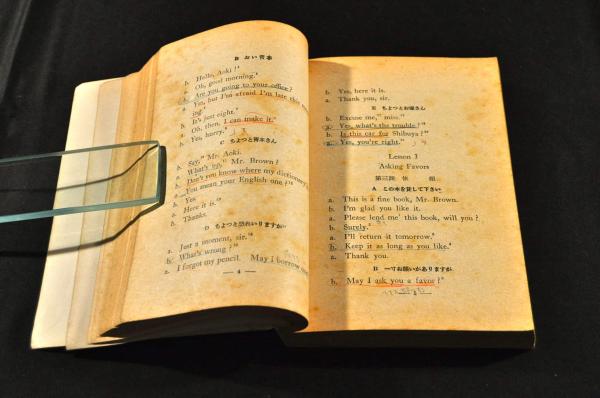 B おい青木
b. Hello, Aoki!
a. Oh, good morning.
b. Are you going to your office?
a. Yes, but I'm afraid I'm late this
ing
b. It's just eight.
a. Oh, then, I can make it.
b. Yes, hurry.
C ちよつと青木さん
b. Say, Mr. Aoki.
a. What's up, Mr. Brown?
b. Don't you know where my dictionary
a. You mean your English one?
b. Yes.
a. Here it is.
b. Thanks.
D ちよつと恐れいりますが
a. Just a moment, sir.
b. What's wrong?
a. I forgot my pencil. May I borrow
— 4 —
b. Yes, here it is.
a. Thank you, sir.
E ちよつとお嬢さん
b. Excuse me, miss.
a. Yes, what's the trouble?
b. Is this car for Shibuya?
a. Yes, you're right.
Lesson 3
Asking Favors
第三課 依 頼
A この本を貸して下さい
a. This is a fine book, Mr. Brown.
b. I'm glad you like it.
a. Please lend me this book, will you?
b. Surely.
a. I'll return it tomorrow.
b. Keep it as long as you like.
a. Thank you.
B 一寸お願いがありますが
b. May I ask you a favor?